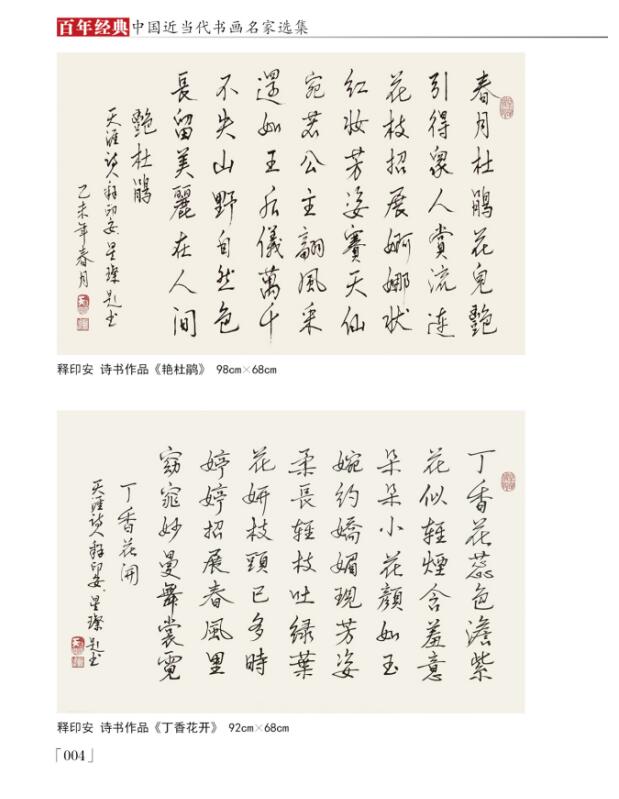 百年经典中国近当代书画名家选集
春月杜鹃花兒艷
引得衆人賞流連
花枝招展婀娜状
红妆芳姿賽天仙
宛若公主翩風采
還如王后儀萬千
不失山野自然色
長留美麗在人间
艷杜鹃
天涯诗人释印安星燦题书
乙未年春月
释印安 诗书作品《艳杜鹃》 98cm×68cm
丁香花蕊色澹紫
花似輕煙含羞意
朵朵小花顏如玉
婉约嬌媚現芳姿
柔長輕枝吐绿葉
花妍枝頭已多時
婷婷招展春風里
窈窕妙曼舞裳霓
丁香花開
天涯诗人释印安星璨题书
释印安 诗书作品《丁香花开》 92cm×68cm
「004」